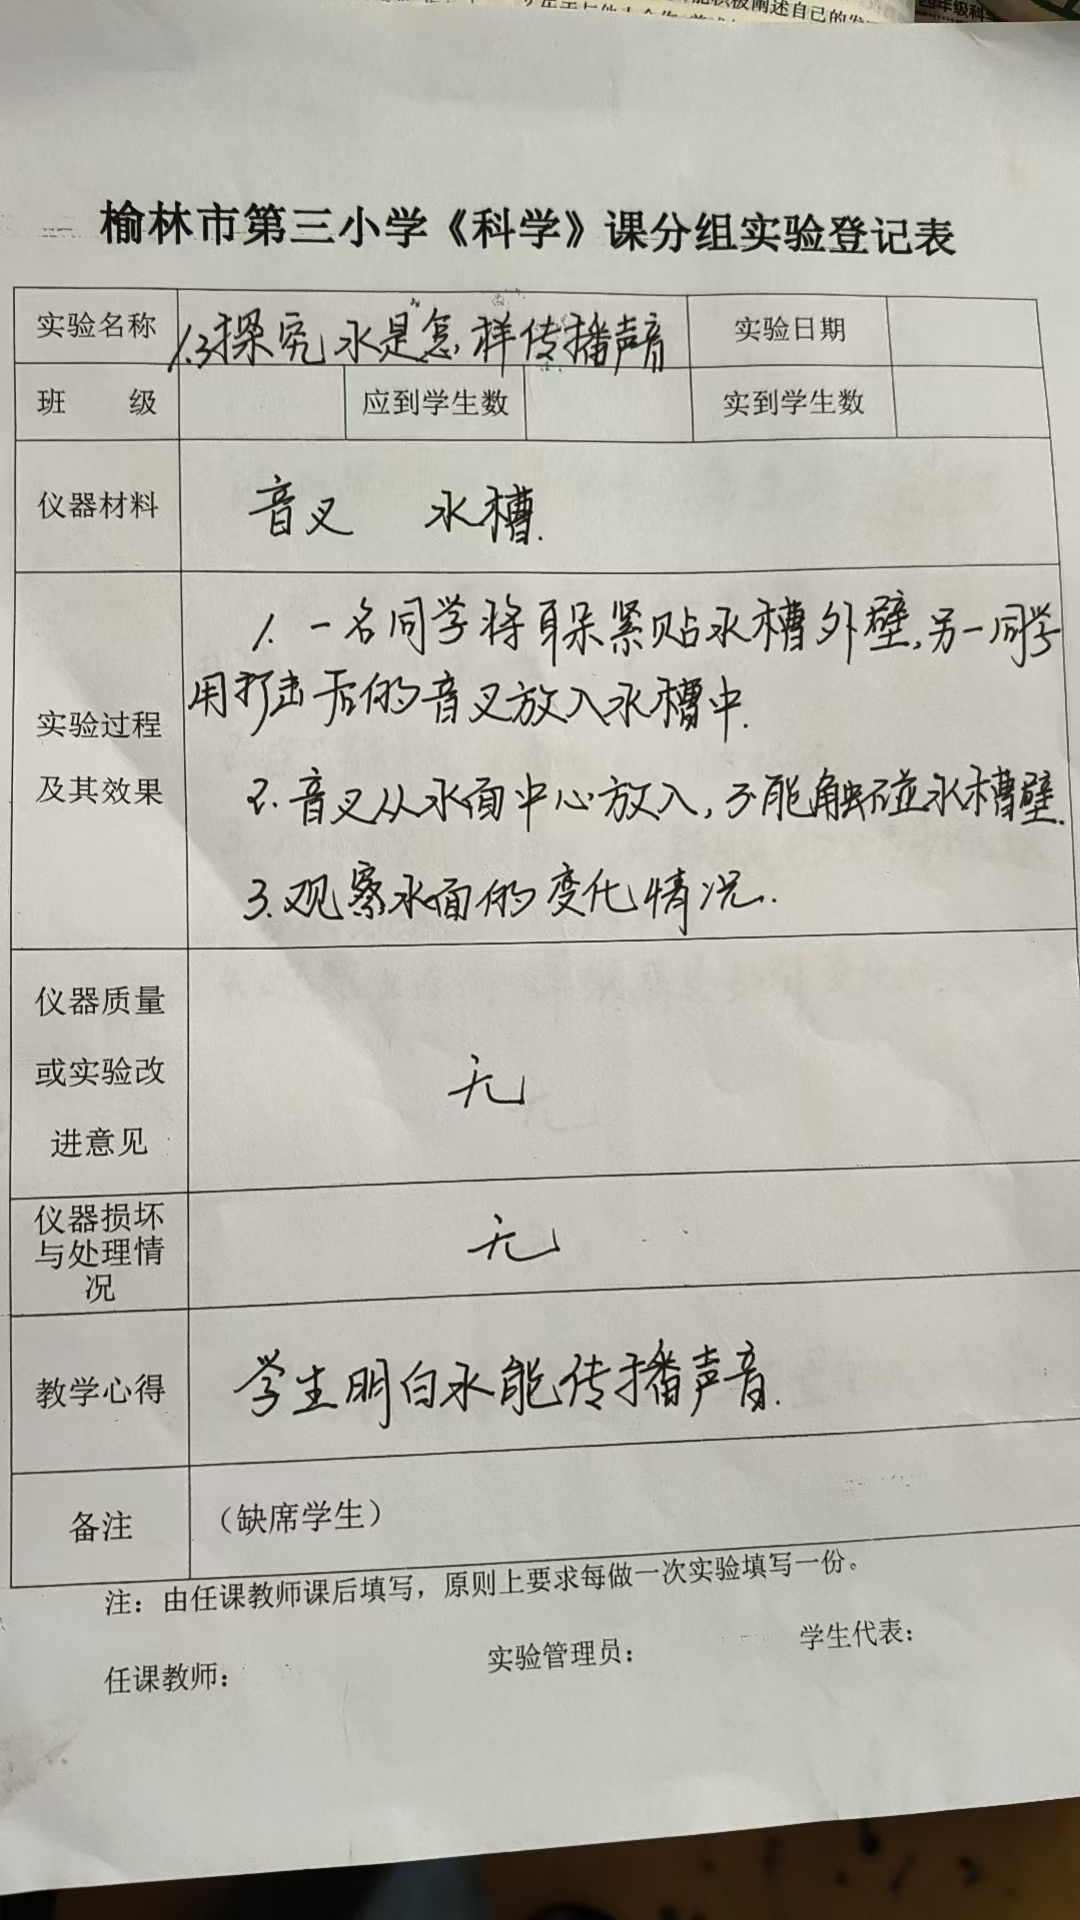 四年级科学
榆林市第三小学《科学》课分组实验登记表
实验名称 1.3探究水是怎样传播声音 实验日期
班 级 应到学生数 实到学生数
仪器材料 音叉 水槽.
1. 一名同学将耳朵紧贴水槽外壁,另一同学
用打击后的音叉放入水槽中.
实验过程
及其效果
2. 音叉从水面中心放入,不能触碰水槽壁.
3. 观察水面的变化情况.
仪器质量
或实验改
进意见
无
仪器损坏
与处理情
况
无
教学心得 学生明白水能传播声音.
备注 （缺席学生）
注：由任课教师课后填写，原则上要求每做一次实验填写一份。
任课教师： 实验管理员： 学生代表：